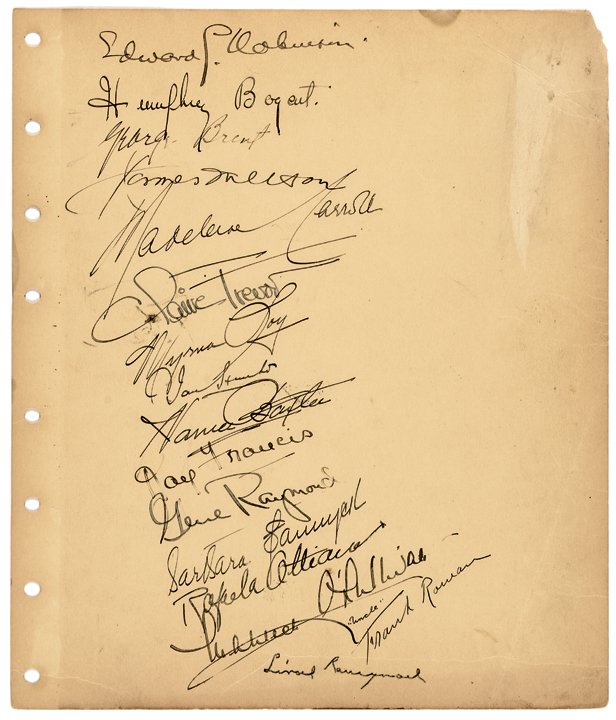 Edward G. Robinson.
Humphrey Bogart.
George Brent
James Melton
Madeleine Carroll
Claire Trevor
Myrna Loy
Warner Baxter
Kay Francis
Gene Raymond
Barbara Stanwyck
Rafaela Ottiano
O'Sullivan
"Uncle"
Frank Rowan
Lionel Barrymore